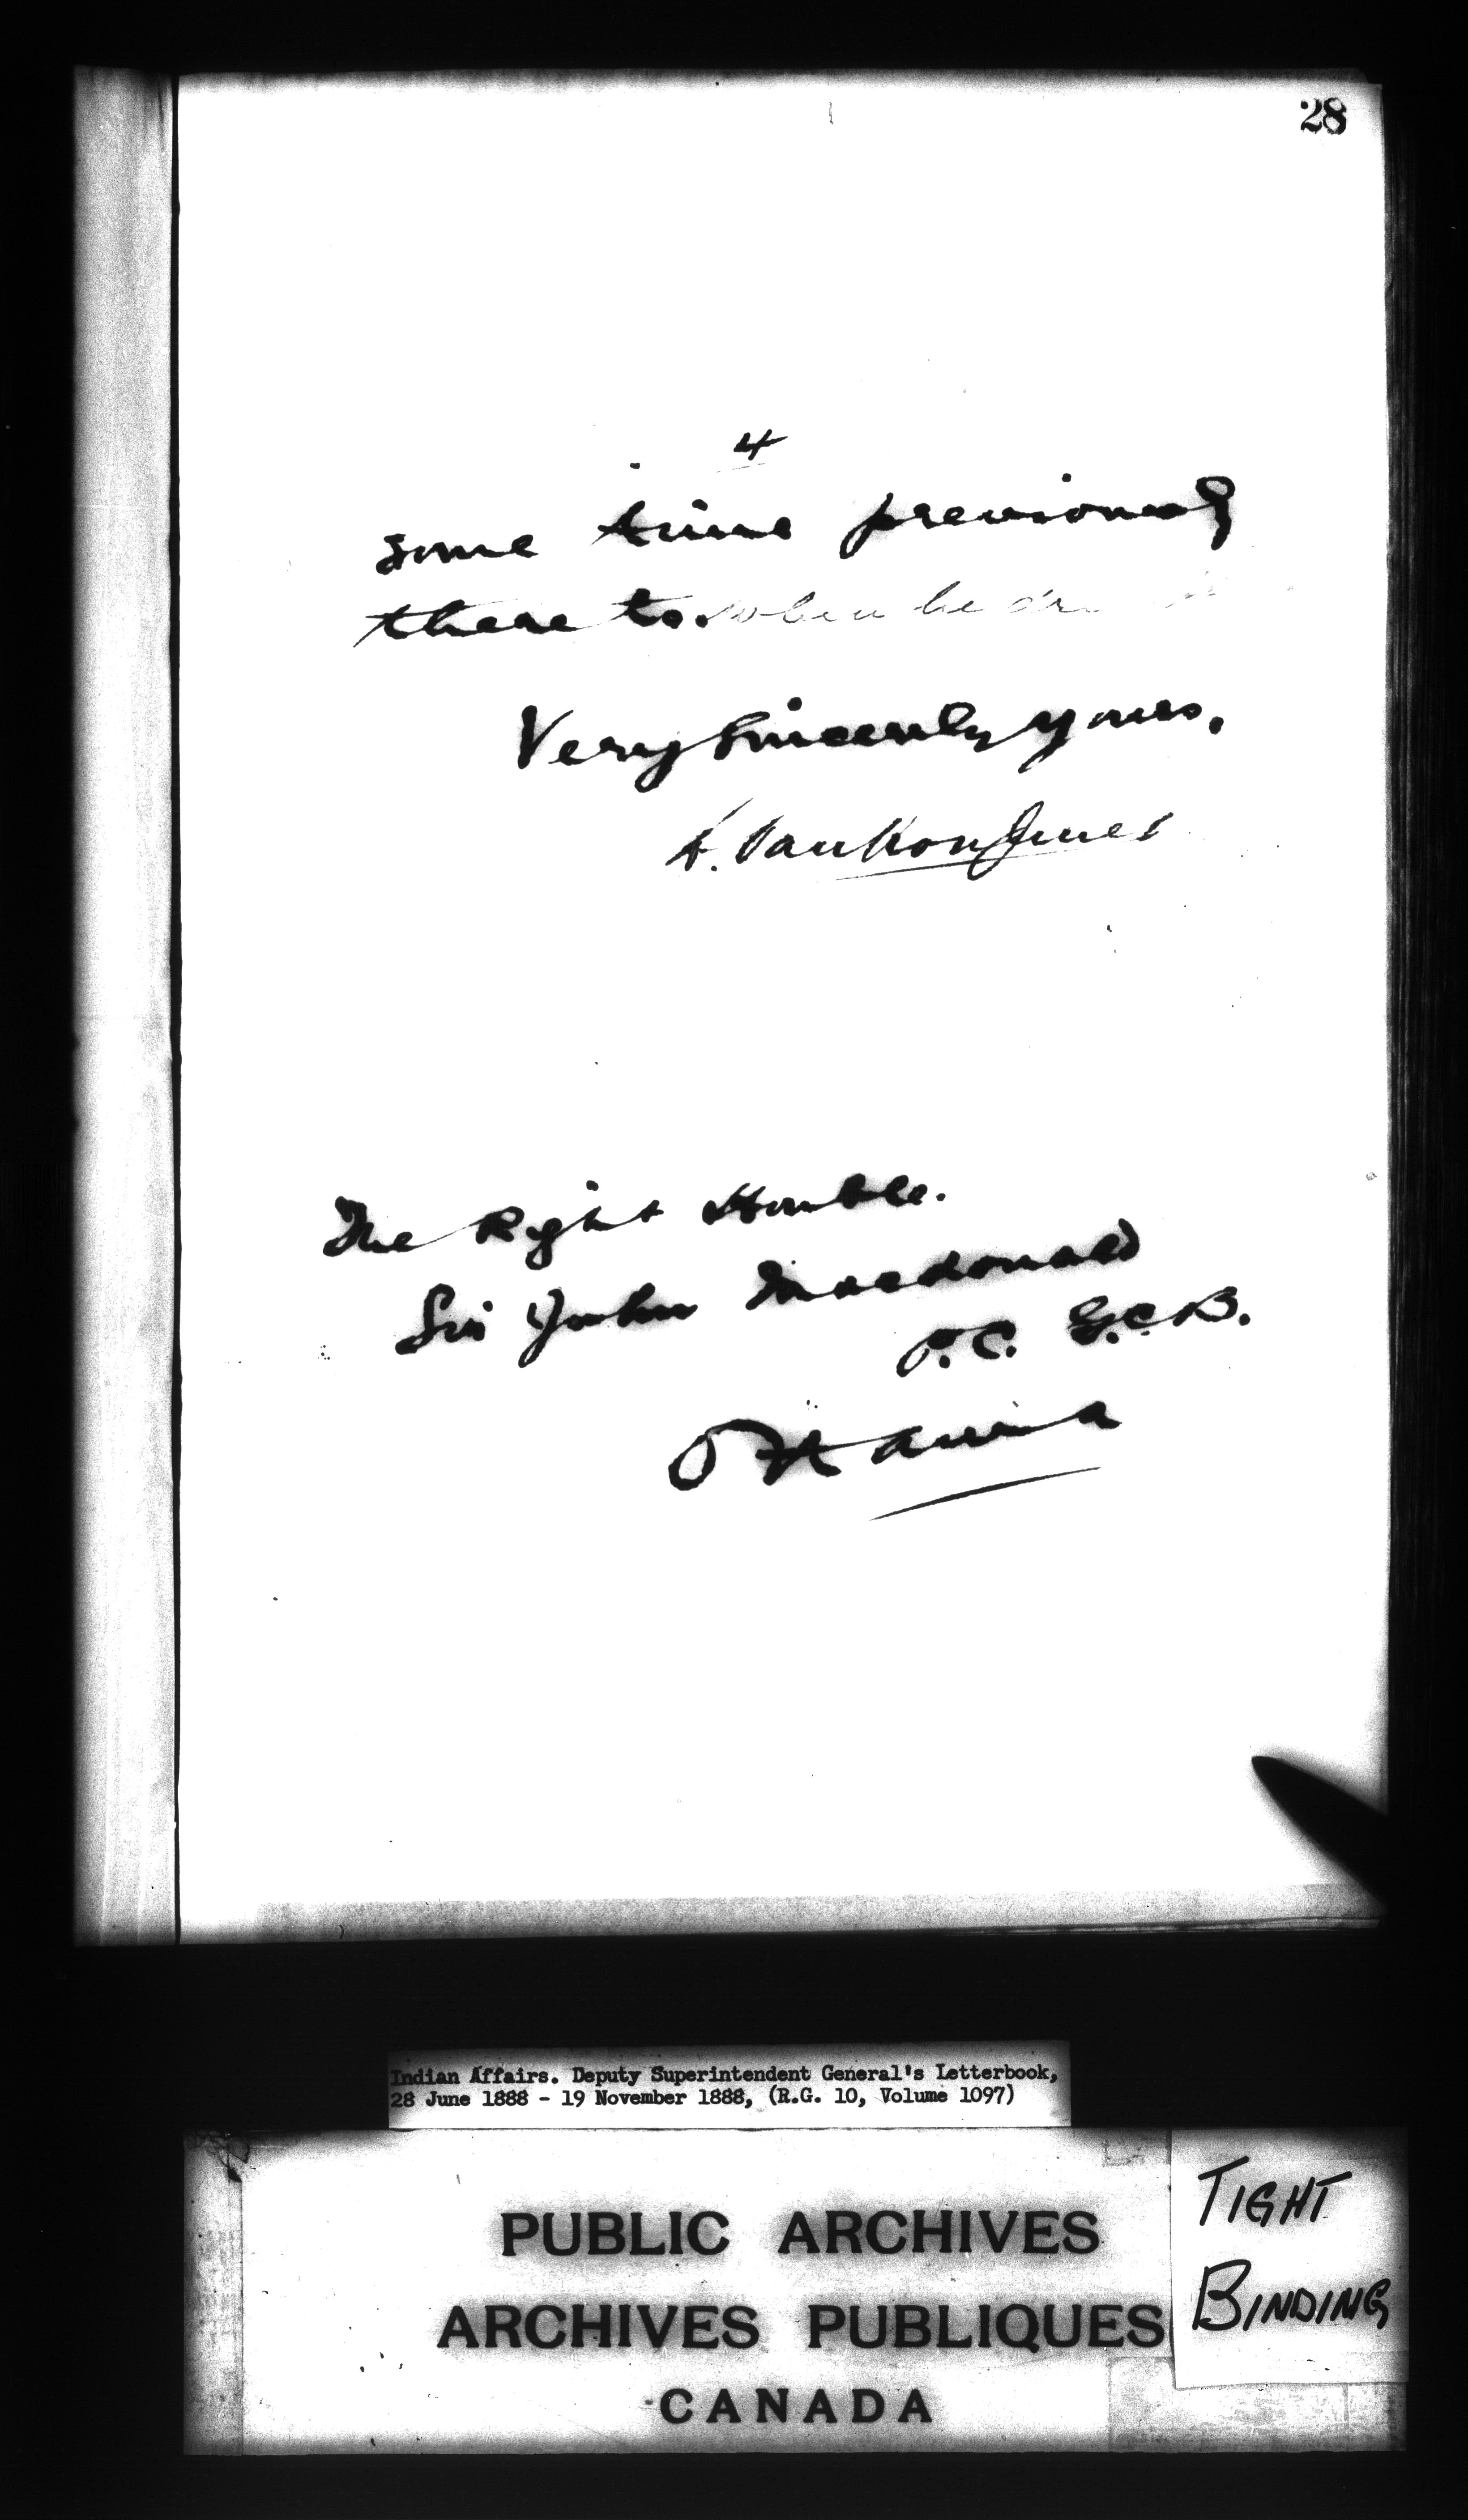 28
4
some time previously
there to. when he
Very Sincerely yours,
L. VanKoughnet
The Right Honble.
Sir John Macdonald
P.C. G.C.B.
Ottawa
Indian Affairs. Deputy Superintendent General's Letterbook,
28 June 1888 - 19 November 1888, (R.G. 10, Volume 1097)
TIGHT
BINDING
PUBLIC ARCHIVES
ARCHIVES PUBLIQUES
CANADA